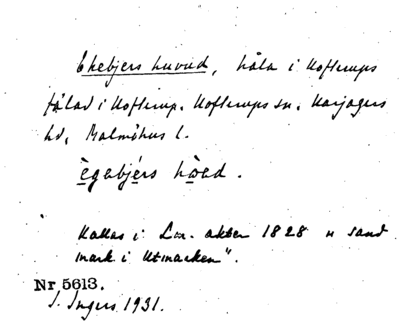 Ekebjers huvud, håla i Kofterups
fälad i Kofterup. Kofterups sn. Harjagers
hd, Malmöhus l.
ègabjérs hòed.
Kallas i L.m. akten 1828 "sand
mark i Utmarken".
Nr 5613.
I. Ingers 1931.